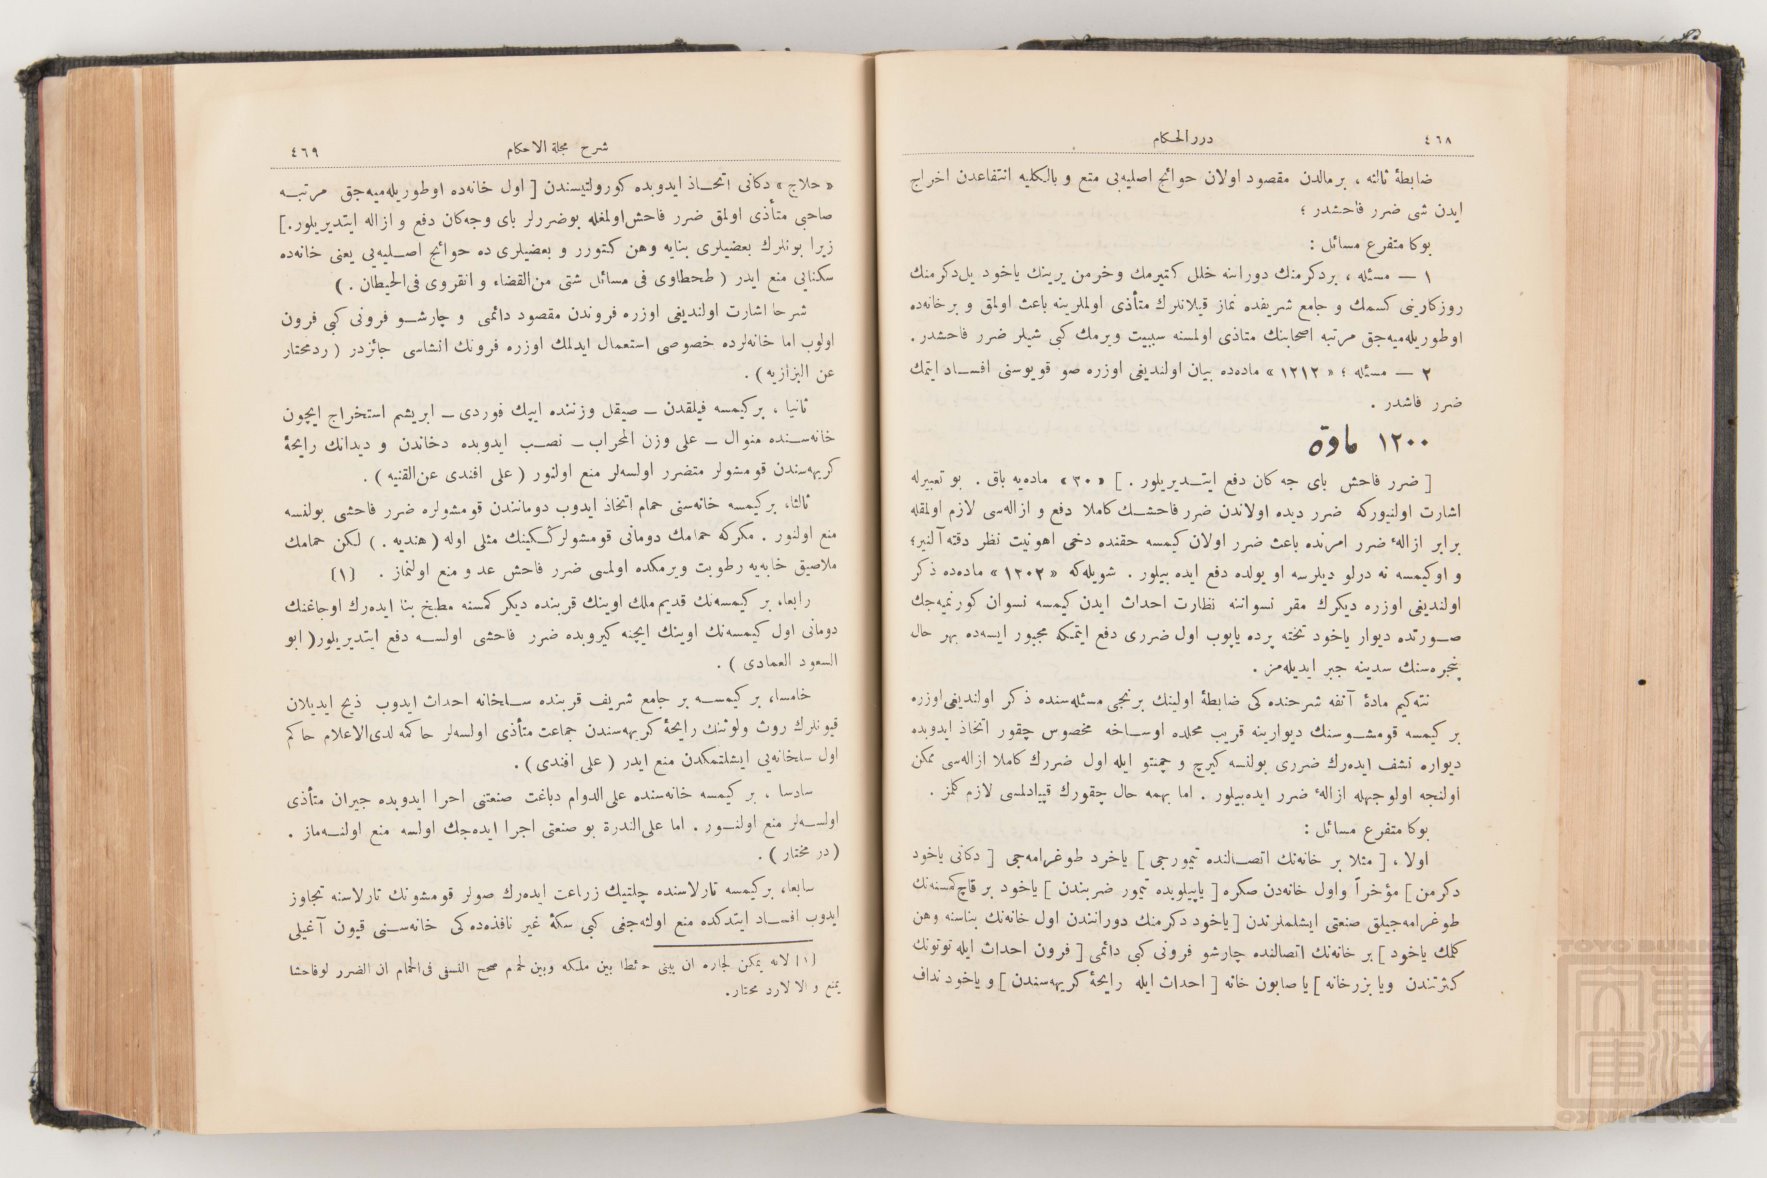 ٤٦٨
درر الحكام
ضابطهٔ ثالثه ، بر مالدن مقصود اولان حوائج اصليه‌يى منع و بالكليه انتفاعدن اخراج
ايدن شى ضرر فاحشدر ؛
بوكا متفرع مسائل :
١ — مسئله ، بردكرمنك دوراننه خلل كتيرمك وخرمن يرينك ياخود يل‌دكرمنك
روزكارينى كسمك و جامع شريفده نماز قيلانلرك متأذى اولملرينه باعث اولمق و برخانه‌ده
اوطوريله‌ميه‌جق مرتبه اصحابنك متاذى اولمسنه سببيت ويرمك كبى شيلر ضرر فاحشدر .
٢ — مسئله ؛ « ١٢١٢ » ماده‌ده بيان اولنديغى اوزره صو قويوسنى افساد ايتمك
ضرر فاشدر .
١٢٠٠ ماده
[ ضرر فاحش باى جه كان دفع ايتديريلور . ] « ٣٠ » ماده‌يه باق . بو تعبيرله
اشارت اولنيوركه ضرر ديده اولاندن ضرر فاحشك كاملا دفع و ازاله‌سى لازم اولمقله
برابر ازالهٔ ضرر امرنده باعث ضرر اولان كيمسه حقنده دخى اهونيت نظر دقته آلنير؛
و اوكيمسه نه درلو ديلرسه او يولده دفع ايده بيلور . شويله‌كه « ١٢٠٢ » ماده‌ده ذكر
اولنديغى اوزره ديكرك مقر نسواننه نظارت احداث ايدن كيمسه نسوان كورنميه‌جك
صورتده ديوار ياخود تخته پرده ياپوب اول ضررى دفع ايتمكه مجبور ايسه‌ده بهر حال
پنجره‌سنك سدينه جبر ايديله‌مز .
نته‌كيم مادهٔ آنفه شرحنده كى ضابطهٔ اولينك برنجى مسئله‌سنده ذكر اولنديغى اوزره
بر كيمسه قومشوسنك ديوارينه قريب محلده اوساخه مخصوص چقور اتخاذ ايدوبده
ديواره نشف ايده‌رك ضررى بولنسه كيرچ و چمنتو ايله اول ضررك كاملا ازاله‌سى ممكن
اولنجه اولوجهله ازالهٔ ضرر ايده‌بيلور . اما بهمه حال چقورك قپادلمسى لازم كلمز .
بوكا متفرع مسائل :
اولا ، [ مثلا بر خانه‌نك اتصالنده تيمورجى ] ياخرد طوغرامه‌جى [ دكانى ياخود
دكرمن ] مؤخراً واول خانه‌دن صكره [ ياپيلوبده تيمور ضربندن ] ياخود بر قاچ كمسنه‌نك
طوغرامه‌جيلق صنعتى ايشلملرندن [ ياخود دكرمنك دورانندن اول خانه‌نك بناسنه وهن
كلمك ياخود ] بر خانه‌نك اتصالنده چارشو فرونى كبى دائمى [ فرون احداث ايله توتونك
كثرتندن ويا بزرخانه ] يا صابون خانه [ احداث ايله رايحهٔ كريهه‌سندن ] و ياخود نداف
شرح مجلة الاحكام
٤٦٩
« حلاج » دكانى اتخاذ ايدوبده كورولتيسندن [ اول خانه‌ده اوطوريله‌ميه‌جق مرتبه
صاحبى متأذى اولمق ضرر فاحش‌اولمغله بوضررلر باى وجه‌كان دفع و ازاله ايتديريلور.]
زيرا بونلرك بعضيلرى بنايه وهن كتورر و بعضيلرى ده حوائج اصليه‌يى يعنى خانه‌ده
سكنايى منع ايدر ( طحطاوى فى مسائل شتى من‌القضاء و انقروى فى‌الحيطان . )
شرحا اشارت اولنديغى اوزره فروندن مقصود دائمى و چارشو فرونى كبى فرون
اولوب اما خانه‌لرده خصوصى استعمال ايدلمك اوزره فرونك انشاسى جائزدر ( ردمحتار
عن البزازيه ) .
ثانيا ، بركيمسه فيلقدن — صيقل وزننده ايپك قوردى — ابريشم استخراج ايچون
خانه‌سنده منوال — على وزن المحراب — نصب ايدوبده دخاندن و ديدانك رايحهٔ
كريهه‌سندن قومشولر متضرر اولسه‌لر منع اولنور ( على افندى عن‌القنيه ) .
ثالثا، بركيمسه خانه‌سنى حمام اتخاذ ايدوب دومانندن قومشولره ضرر فاحشى بولنسه
منع اولنور . مكركه حمامك دومانى قومشولرككينك مثلى اوله ( هنديه . ) لكن حمامك
ملاصيق خانه‌يه رطوبت ويرمكده اولمسى ضرر فاحش عد و منع اولنماز . [١]
رابعا، بر كيمسه‌نك قديم ملك اوينك قربنده ديكر كمسنه مطبخ بنا ايده‌رك اوجاغنك
دومانى اول كيمسه‌نك اوينك ايچنه كيروبده ضرر فاحشى اولسه دفع ايتديريلور( ابو
السعود العمادى ) .
خامسا، بر كيمسه بر جامع شريف قربنده سلخانه احداث ايدوب ذبح ايديلان
قيونلرك روث ولوثنك رايحهٔ كريهه‌سندن جماعت متأذى اولسه‌لر حاكمه لدى‌الاعلام حاكم
اول سلخانه‌يى ايشلتمكدن منع ايدر ( على افندى ) .
سادسا ، بر كيمسه خانه‌سنده على‌الدوام دباغت صنعتنى اجرا ايدوبده جيران متأذى
اولسه‌لر منع اولنور . اما على‌الندرة بو صنعتى اجرا ايده‌جك اولسه منع اولنه‌ماز .
( در مختار ) .
سابعا، بركيمسه تارلاسنده چلتيك زراعت ايده‌رك صولر قومشونك تارلاسنه تجاوز
ايدوب افساد ايتدكده منع اولنه‌جغى كبى سكهٔ غير نافذه‌ده كى خانه‌سنى قيون آغيلى
[١] لانه يمكن لجاره ان يبنى حائطا بين ملكه وبين لحمام صحح النسفى فى‌الحمام ان الضرر لوفاحشا
يمنع و الا لا رد محتار.